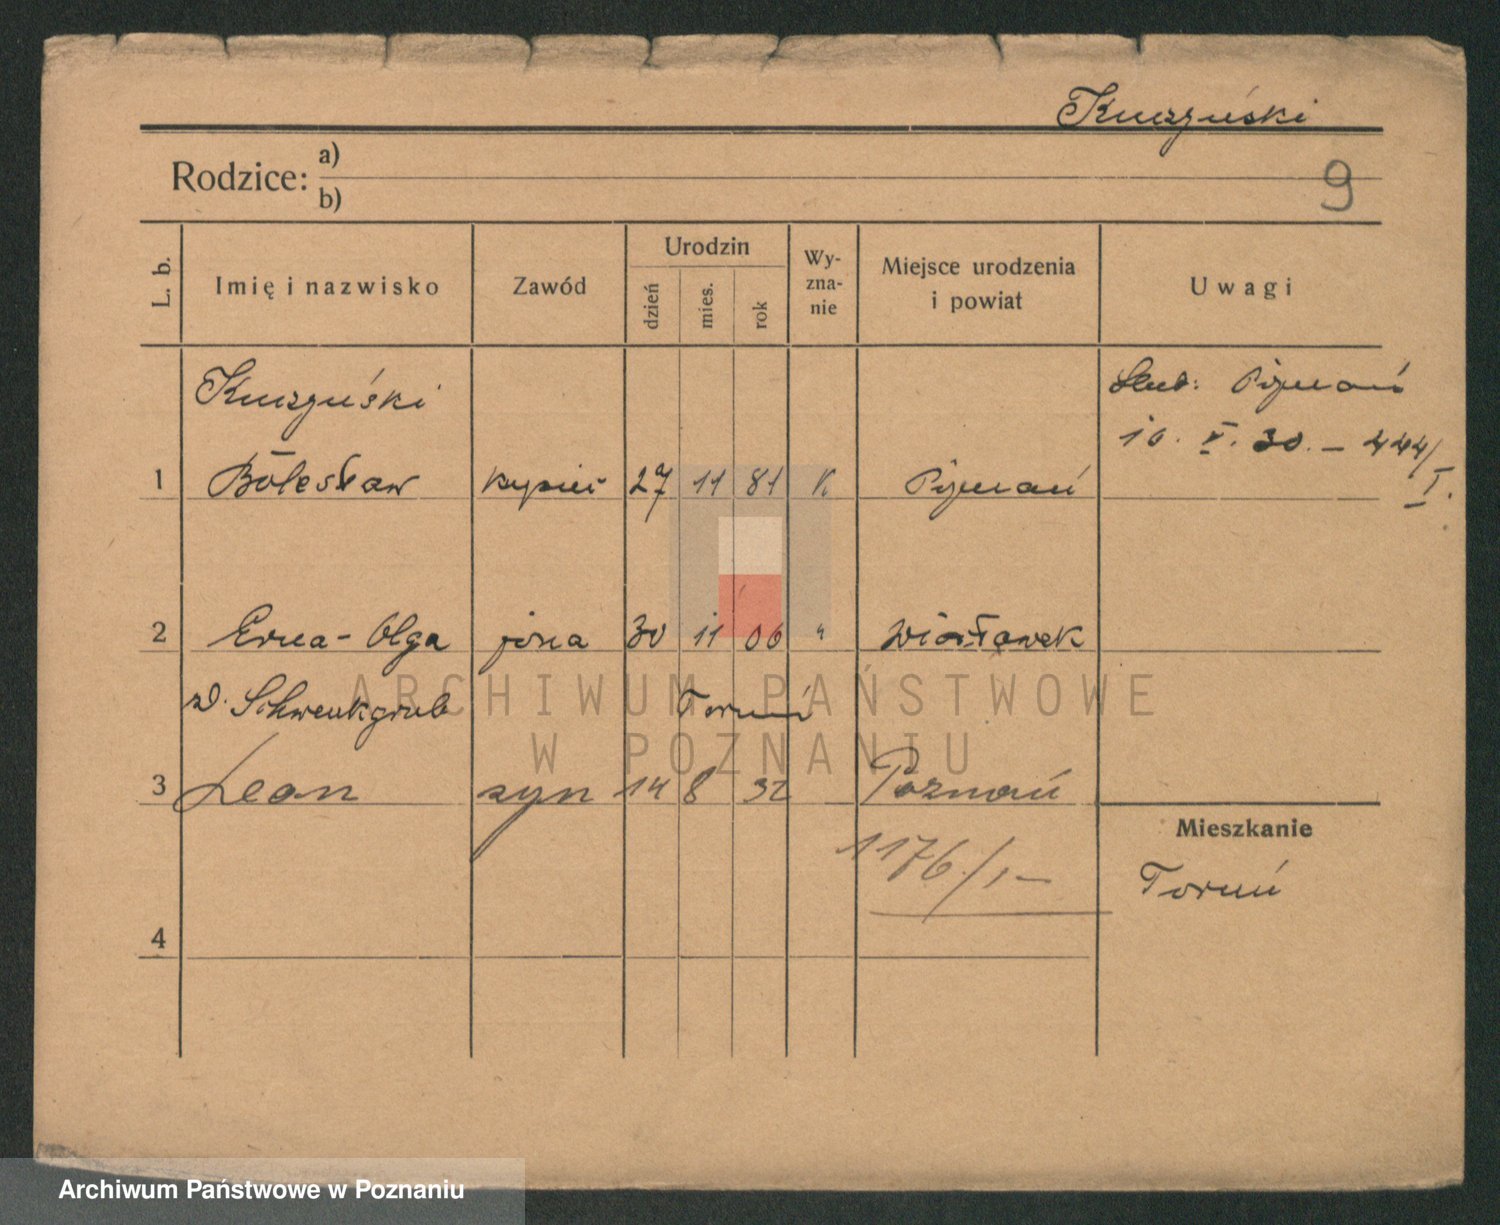 Kuczyński
Rodzice: a)
b)
9
L. b.
Imię i nazwisko
Zawód
Urodzin
dzień
mies.
rok
Wy-
zna-
nie
Miejsce urodzenia
i powiat
Uwagi
Kuczyński
1 Bolesław kupiec 27 11 81 K Poznań
Ślub: Poznań
10. V. 30. – 444/
I.
2 Erna - Olga żona 30 11 06 " Włocławek
z d. Schwenkgrub Toruń
3 Leon syn 14 8 32 Poznań
1176/1 –
Mieszkanie
Toruń
4
ARCHIWUM PAŃSTWOWE
W POZNANIU
Archiwum Państwowe w Poznaniu